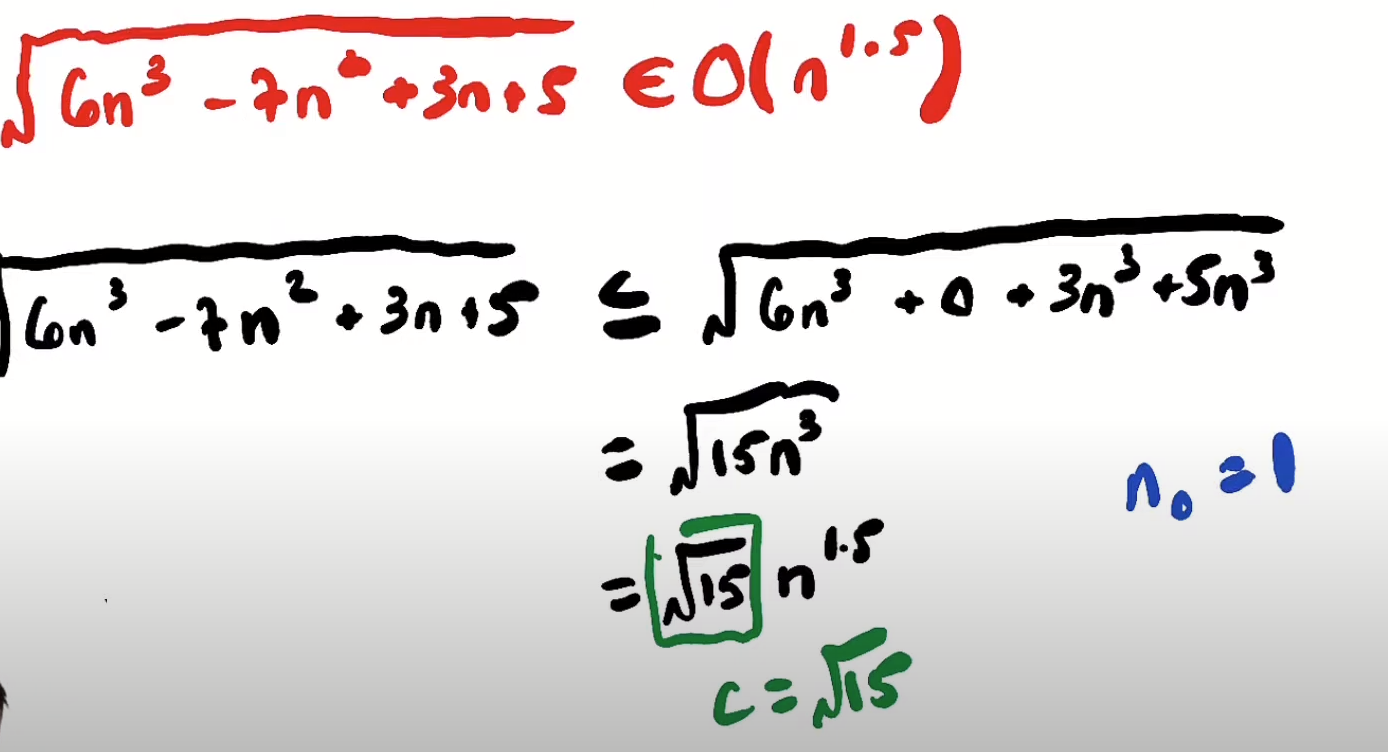 √(6n³ - 7n² + 3n + 5) ∈ O(n^1.5)
√(6n³ - 7n² + 3n + 5) ≤ √(6n³ + 0 + 3n³ + 5n³)
= √(15n³)
n₀ = 1
= √15 n^1.5
c = √15